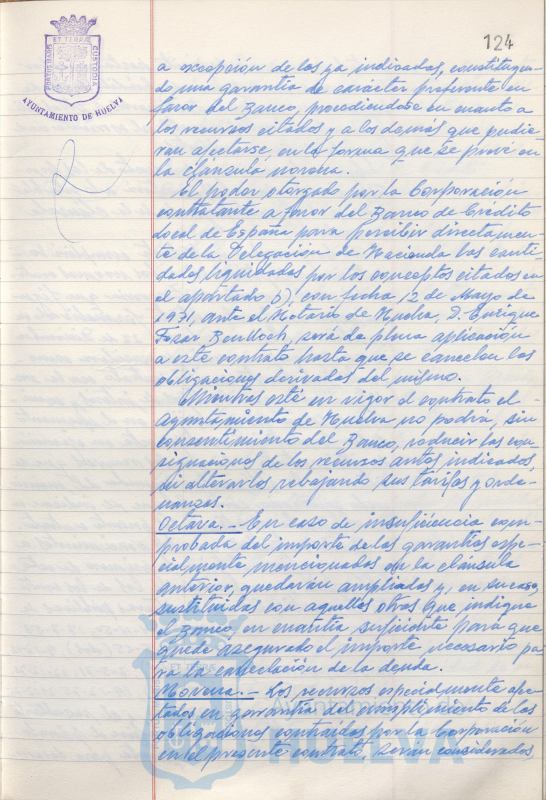 124
PORTUS MARIS ET TERRÆ CUSTODIA
AYUNTAMIENTO DE HUELVA
a excepción de los ya indicados, constituyen-
do una garantía de carácter preferente en
favor del Banco, procediéndose en cuanto a
los recursos citados y a los demás que pudie-
ran afectarse, en la forma que se prevé en
la cláusula novena.
El poder otorgado por la Corporación
contratante a favor del Banco de Crédito
Local de España para percibir directamen-
te de la Delegación de Hacienda las canti-
dades liquidadas por los conceptos citados en
el apartado b), con fecha 12 de Mayo de
1971, ante el Notario de Huelva, D. Enrique
será de plena aplicación
a este contrato hasta que se cancelen las
obligaciones derivadas del mismo.
Mientras esté en vigor el contrato el
Ayuntamiento de Huelva no podrá, sin
consentimiento del Banco, reducir las con-
signaciones de los recursos antes indicados,
ni alterarlos rebajando sus tarifas y orde-
nanzas.
Octava.- En caso de insuficiencia com-
probada del importe de las garantías espe-
cialmente mencionadas en la cláusula
anterior, quedarán ampliadas y, en su caso,
sustituidas con aquellos otros que indique
el Banco, en cuantía suficiente para que
quede asegurado el importe necesario pa
ra la cancelación de la deuda.
Novena.- Los recursos especialmente afec-
tados en garantía del cumplimiento de las
obligaciones contraídas por la Corporación
en el presente contrato, serán considerados
Ayuntamiento de
HUELVA